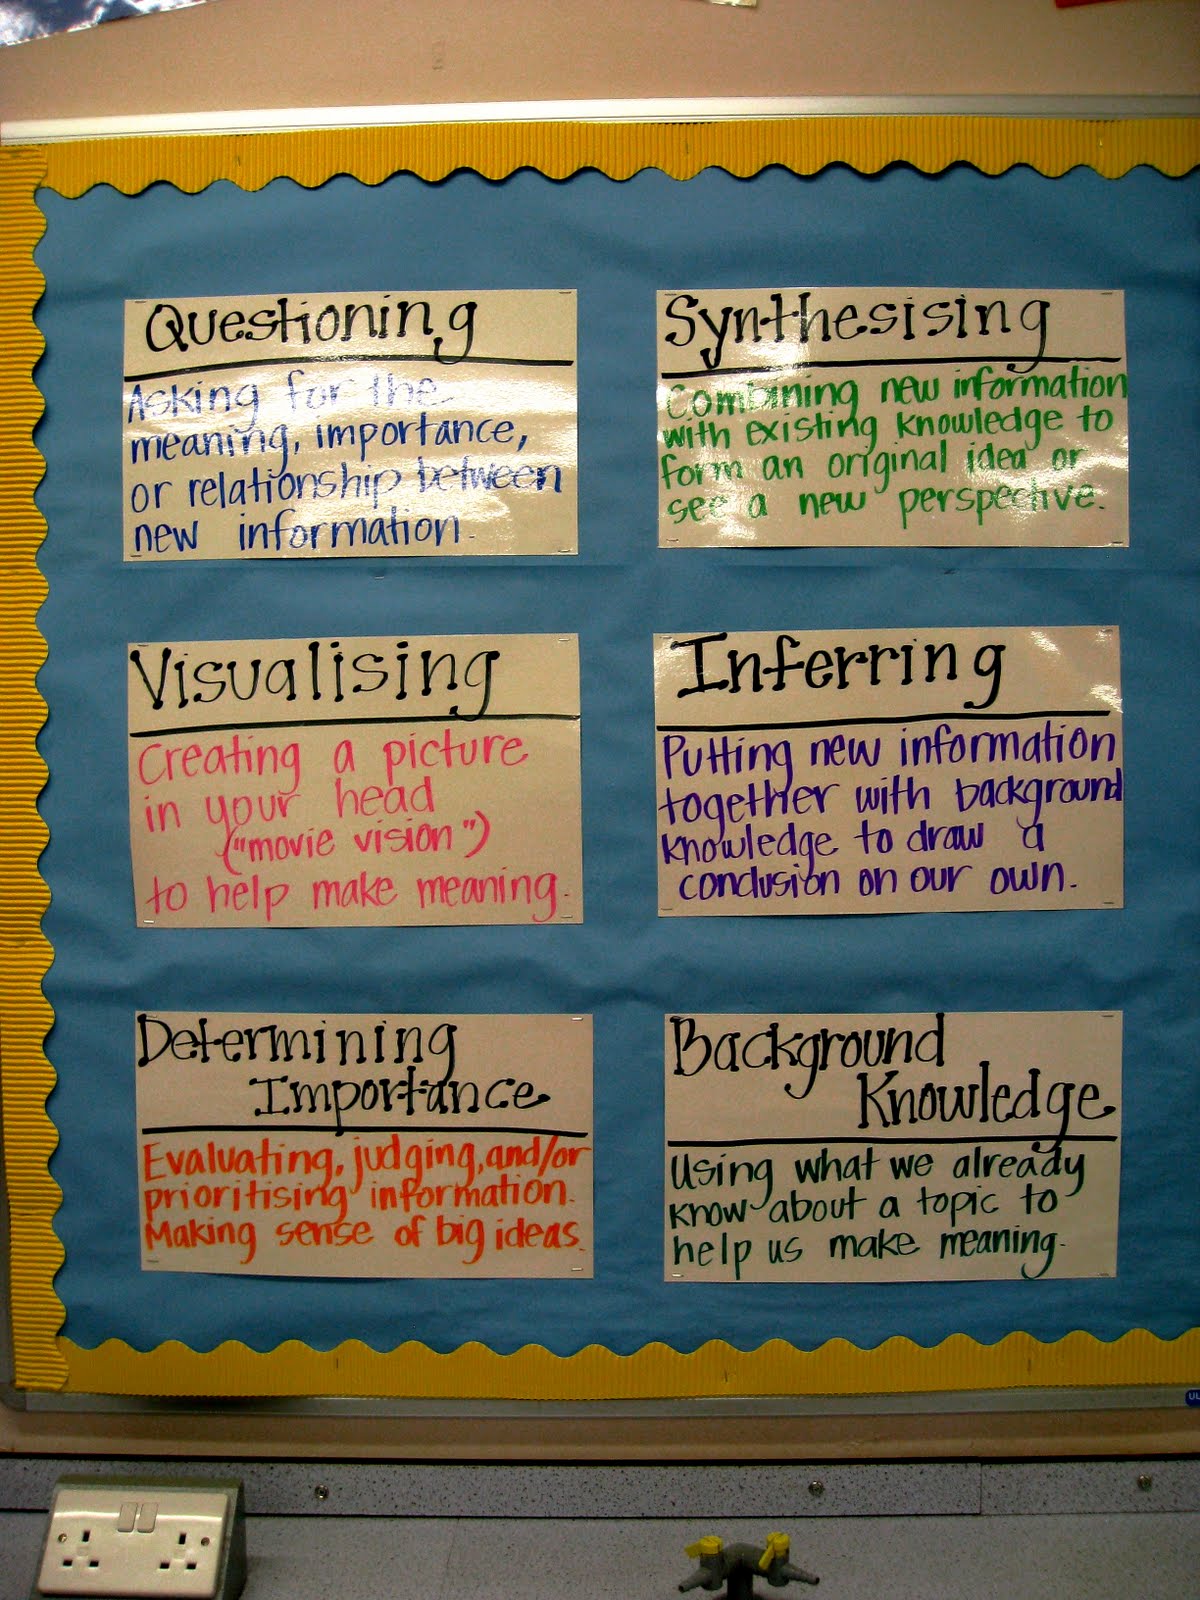 Questioning
Asking for the
meaning, importance,
or relationship between
new information.
Synthesising
Combining new information
with existing knowledge to
form an original idea or
see a new perspective.
Visualising
Creating a picture
in your head
("movie vision")
to help make meaning.
Inferring
Putting new information
together with background
knowledge to draw a
conclusion on our own.
Determining
Importance
Evaluating, judging, and/or
prioritising information.
Making sense of big ideas.
Background
Knowledge
Using what we already
know about a topic to
help us make meaning.